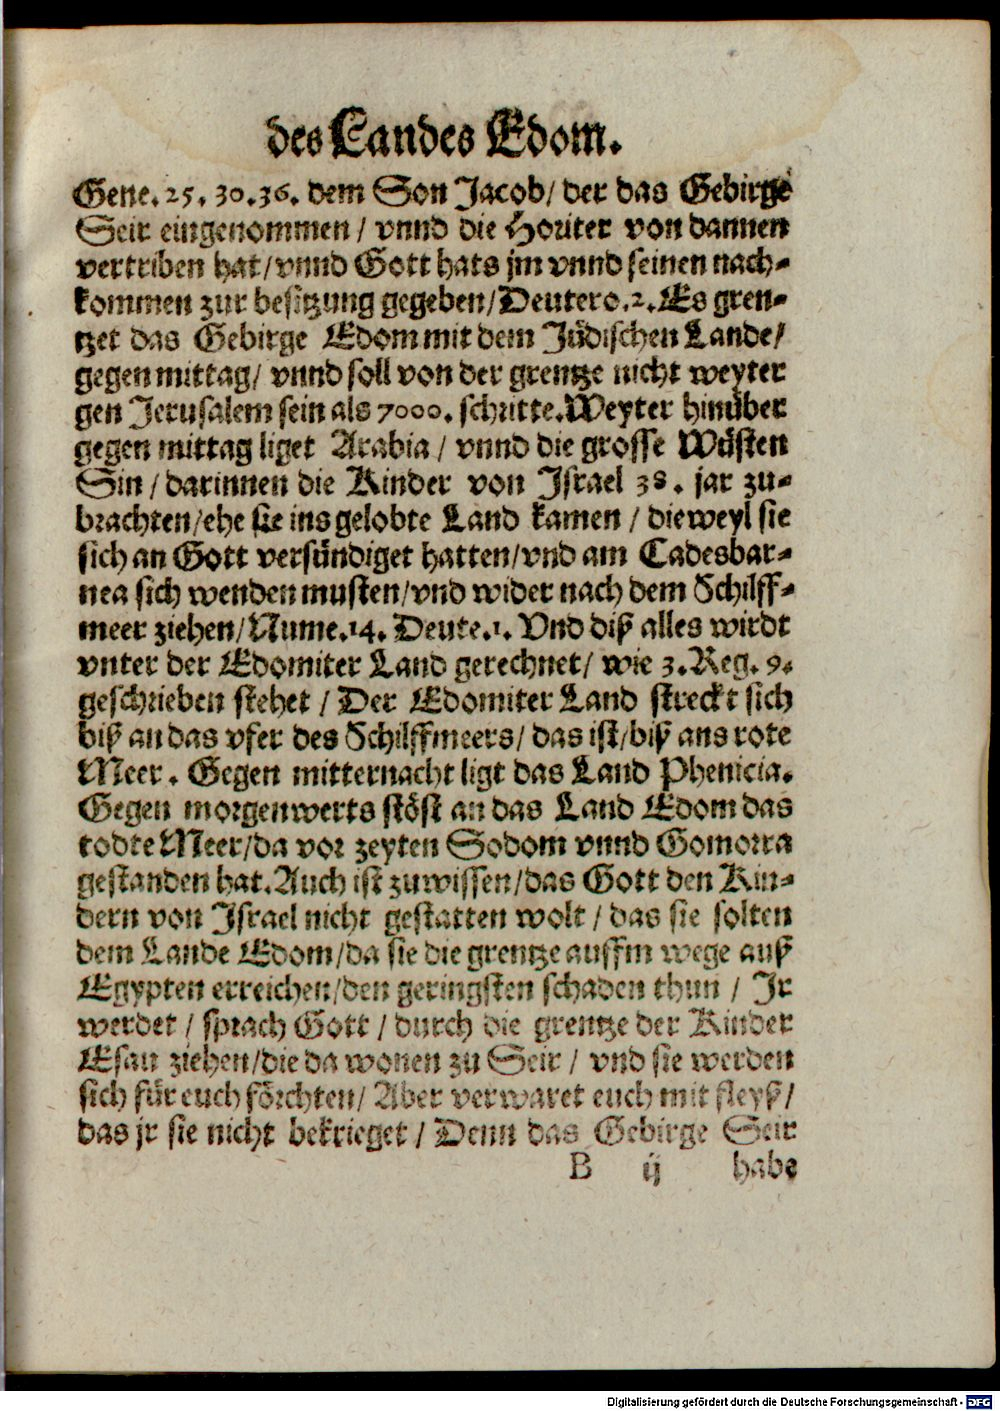 des Landes Edom.
Gene. 25. 30. 36. dem Son Jacob/ der das Gebirge
Seir eingenommen / vnnd die Horiter von dannen
vertriben hat/ vnnd Gott hats jm vnnd seinen nach-
kommen zur besitzung gegeben/ Deutero. 2. Es gren-
tzet das Gebirge Edom mit dem Jüdischen Lande/
gegen mittag/ vnnd soll von der grentze nicht weyter
gen Jerusalem sein als 7000. schritte. Weyter hinüber
gegen mittag liget Arabia / vnnd die grosse Wüsten
Sin / darinnen die Kinder von Israel 38. jar zu-
brachten/ ehe sie ins gelobte Land kamen / dieweyl sie
sich an Gott versündiget hatten/ vnd am Cadesbar-
nea sich wenden musten/ vnd wider nach dem Schilff-
meer ziehen/ Nume. 14. Deute. 1. Vnd diß alles wirdt
vnter der Edomiter Land gerechnet/ wie 3. Reg. 9.
geschrieben stehet / Der Edomiter Land streckt sich
biß an das vfer des Schilffmeers/ das ist/ biß ans rote
Meer. Gegen mitternacht ligt das Land Phenicia.
Gegen morgenwerts stöst an das Land Edom das
todte Meer/ da vor zeyten Sodom vnnd Gomorra
gestanden hat. Auch ist zuwissen/ das Gott den Kin-
dern von Israel nicht gestatten wolt / das sie solten
dem Lande Edom/ da sie die grentze auffm wege auß
Egypten erreichen/ den geringsten schaden thun / Jr
werdet / sprach Gott / durch die grentze der Kinder
Esau ziehen/ die da wonen zu Seir / vnd sie werden
sich für euch förchten/ Aber verwaret euch mit fleyß/
das jr sie nicht bekrieget / Denn das Gebirge Seir
B ij habe
Digitalisierung gefördert durch die Deutsche Forschungsgemeinschaft - DFG